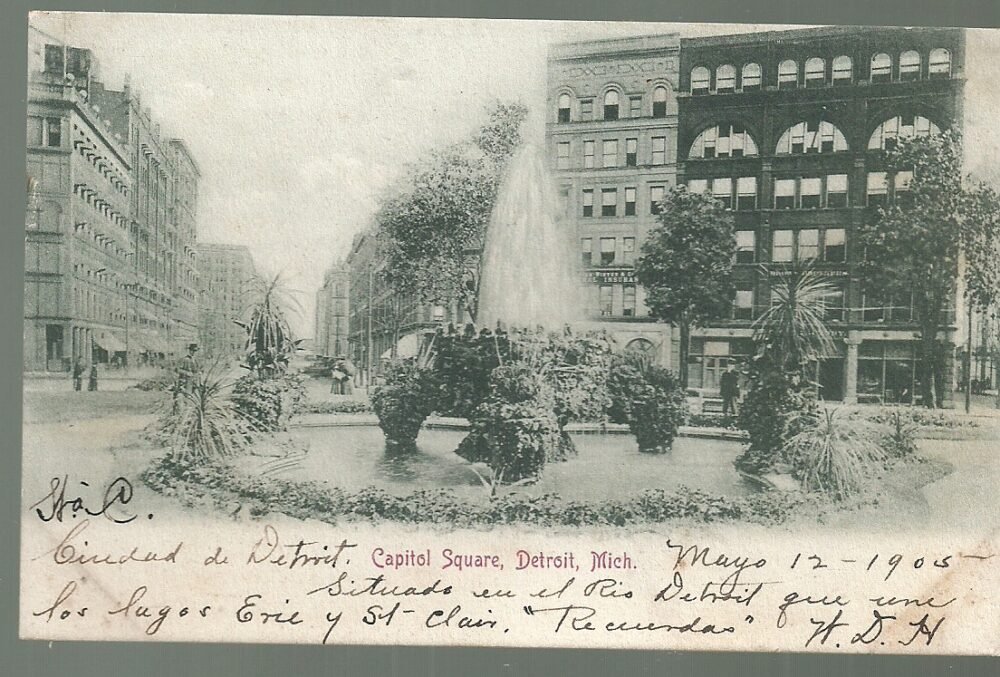 Sta C.
Ciudad de Detroit. Capitol Square, Detroit, Mich. Mayo 12-1905
Situado en el Rio Detroit que une
los lagos Erie y St Clair. "Recuerdas" W. D. H